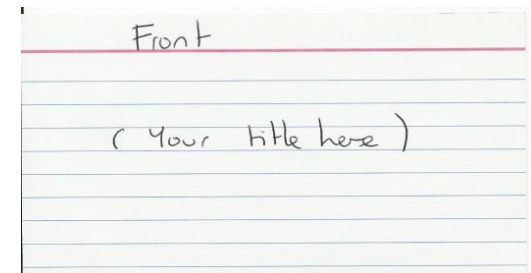 Front
( Your title here )